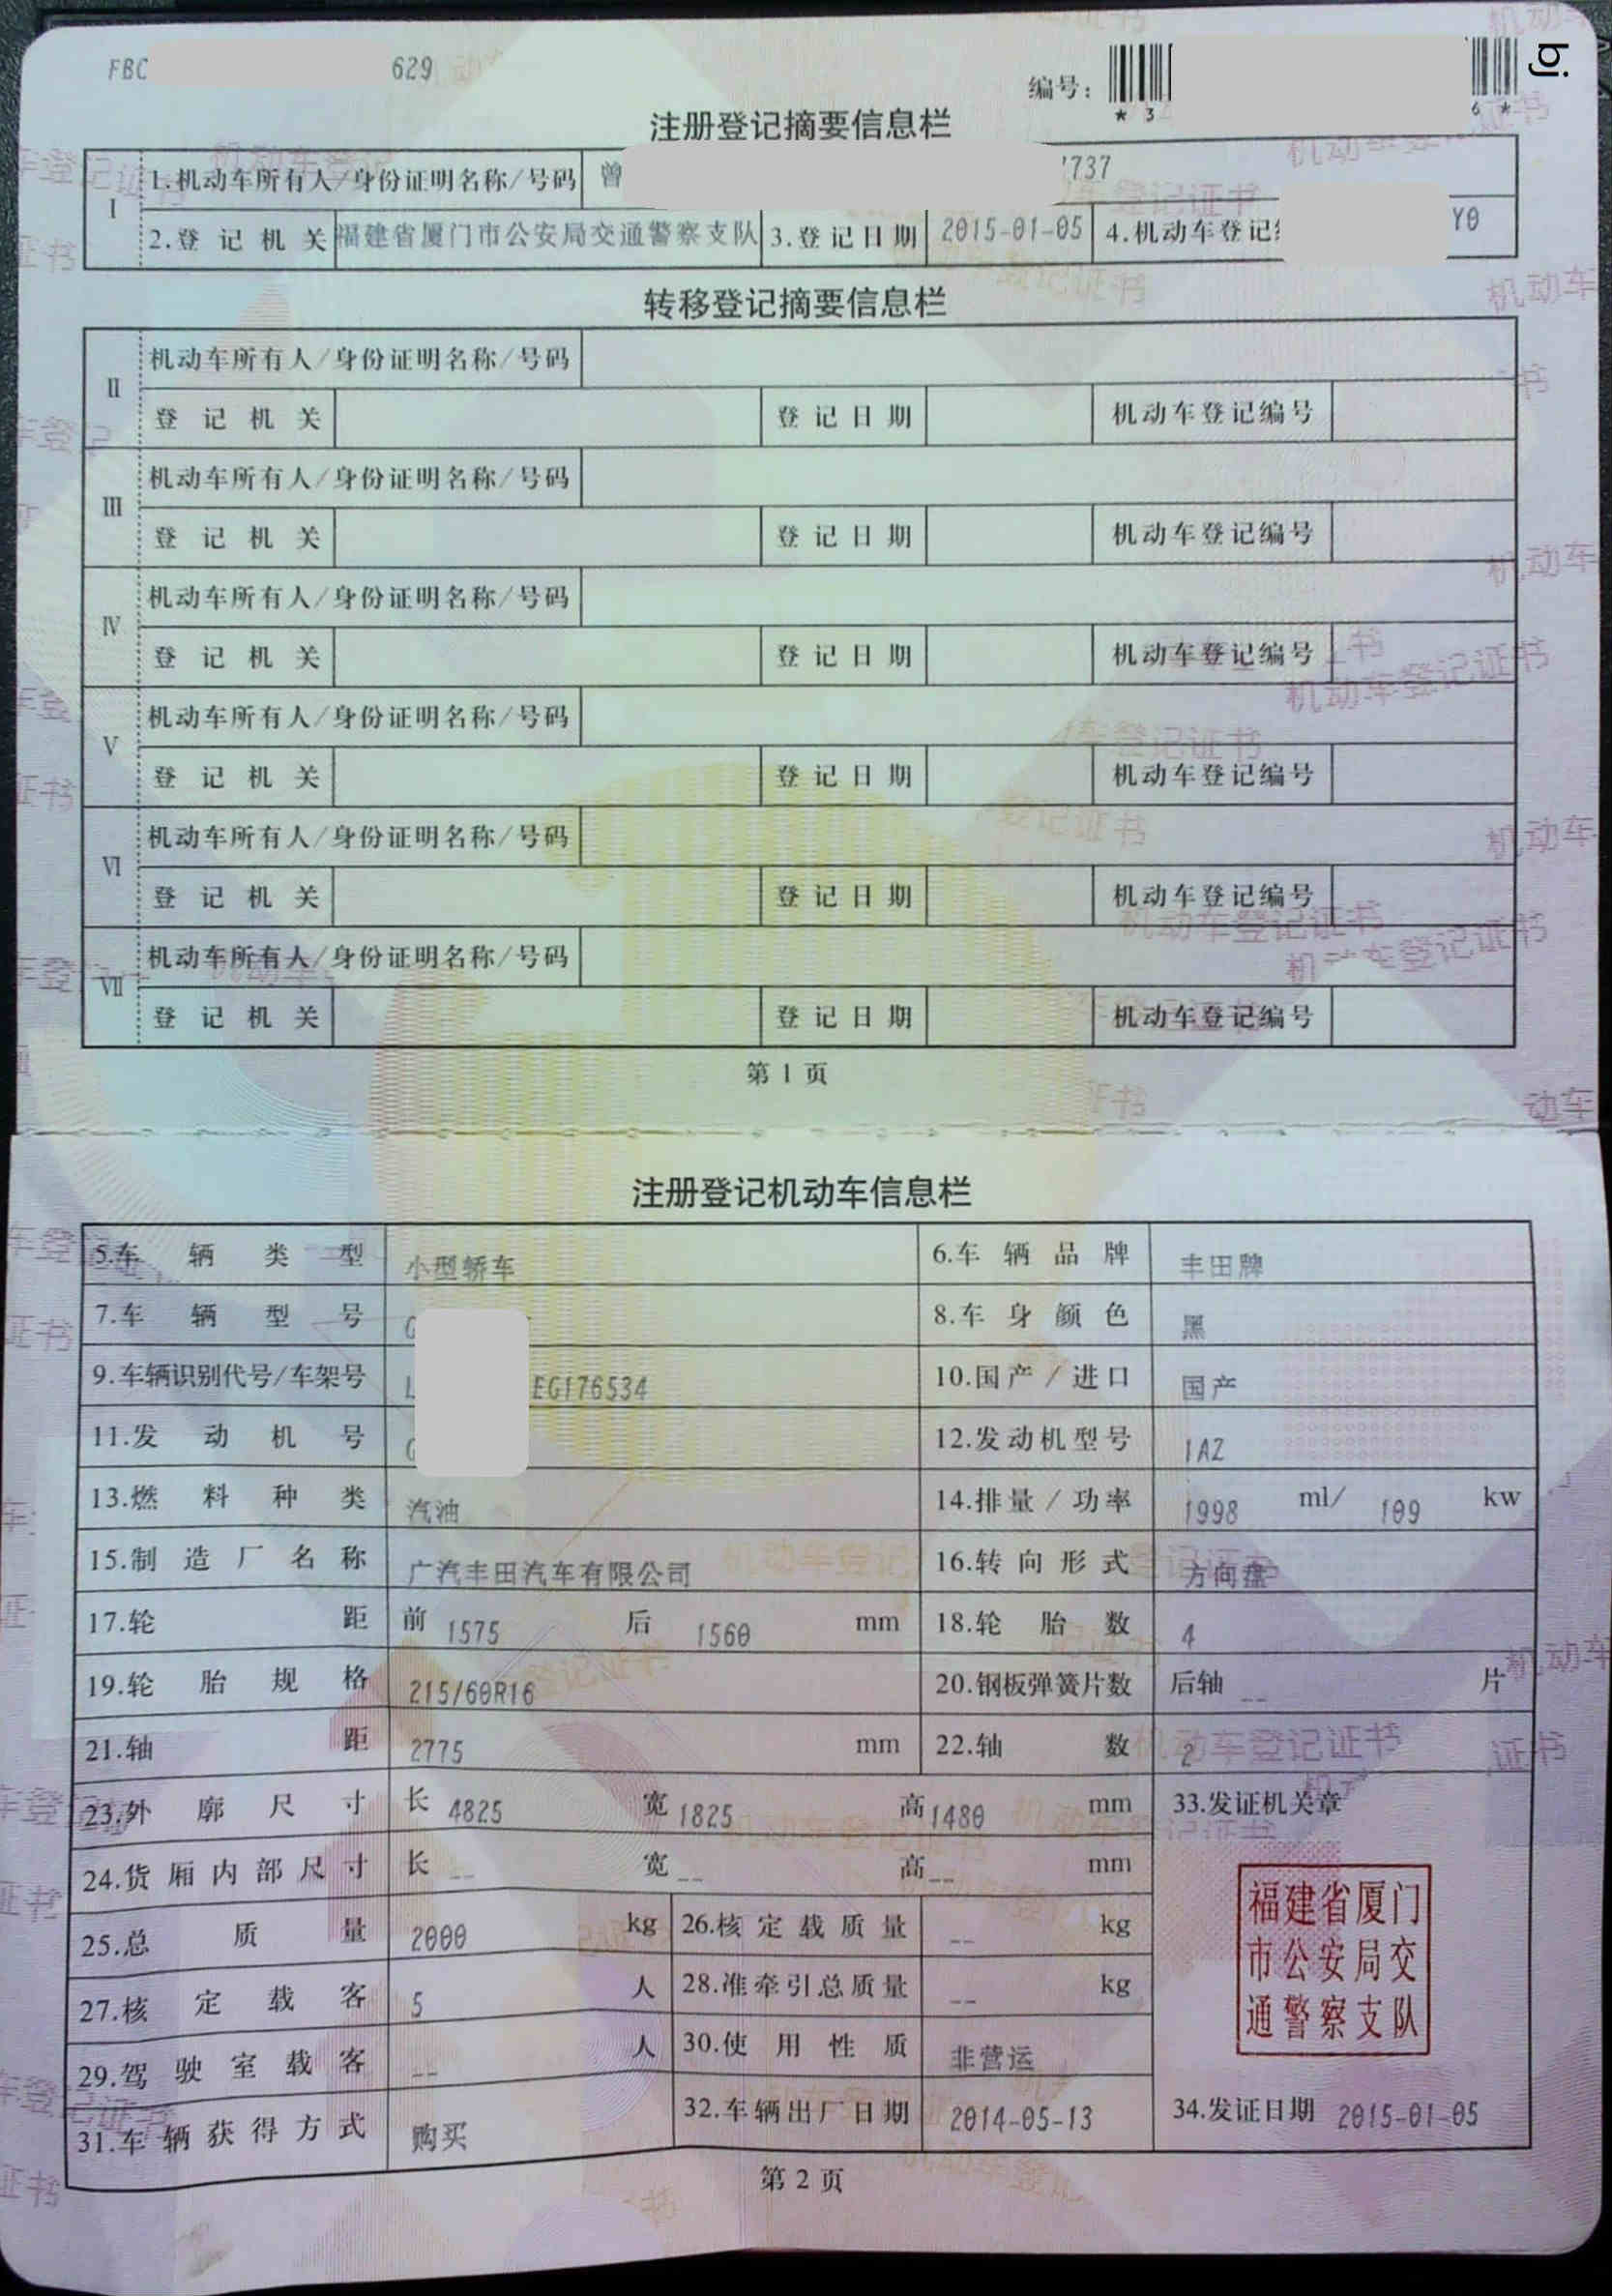 FBC 629
编号: * 3 6 *
bj
注册登记摘要信息栏
I 1.机动车所有人/身份证明名称/号码 曾 737
2.登记机关 福建省厦门市公安局交通警察支队 3.登记日期 2015-01-05 4.机动车登记 Y0
转移登记摘要信息栏
II 机动车所有人/身份证明名称/号码
登记机关 登记日期 机动车登记编号
III 机动车所有人/身份证明名称/号码
登记机关 登记日期 机动车登记编号
IV 机动车所有人/身份证明名称/号码
登记机关 登记日期 机动车登记编号
V 机动车所有人/身份证明名称/号码
登记机关 登记日期 机动车登记编号
VI 机动车所有人/身份证明名称/号码
登记机关 登记日期 机动车登记编号
VII 机动车所有人/身份证明名称/号码
登记机关 登记日期 机动车登记编号
第 1 页
注册登记机动车信息栏
5.车辆类型 小型轿车 6.车辆品牌 丰田牌
7.车辆型号 8.车身颜色 黑
9.车辆识别代号/车架号 L EG176534 10.国产/进口 国产
11.发动机号 12.发动机型号 1AZ
13.燃料种类 汽油 14.排量/功率 1998 ml/ 109 kw
15.制造厂名称 广汽丰田汽车有限公司 16.转向形式 方向盘
17.轮距 前 1575 后 1560 mm 18.轮胎数 4
19.轮胎规格 215/60R16 20.钢板弹簧片数 后轴 -- 片
21.轴距 2775 mm 22.轴数 2
23.外廓尺寸 长 4825 宽 1825 高 1480 mm 33.发证机关章
24.货厢内部尺寸 长 -- 宽 -- 高 -- mm
25.总质量 2000 kg 26.核定载质量 -- kg
27.核定载客 5 人 28.准牵引总质量 -- kg
福建省厦门
市公安局交
通警察支队
29.驾驶室载客 -- 人 30.使用性质 非营运
31.车辆获得方式 购买 32.车辆出厂日期 2014-05-13 34.发证日期 2015-01-05
第 2 页